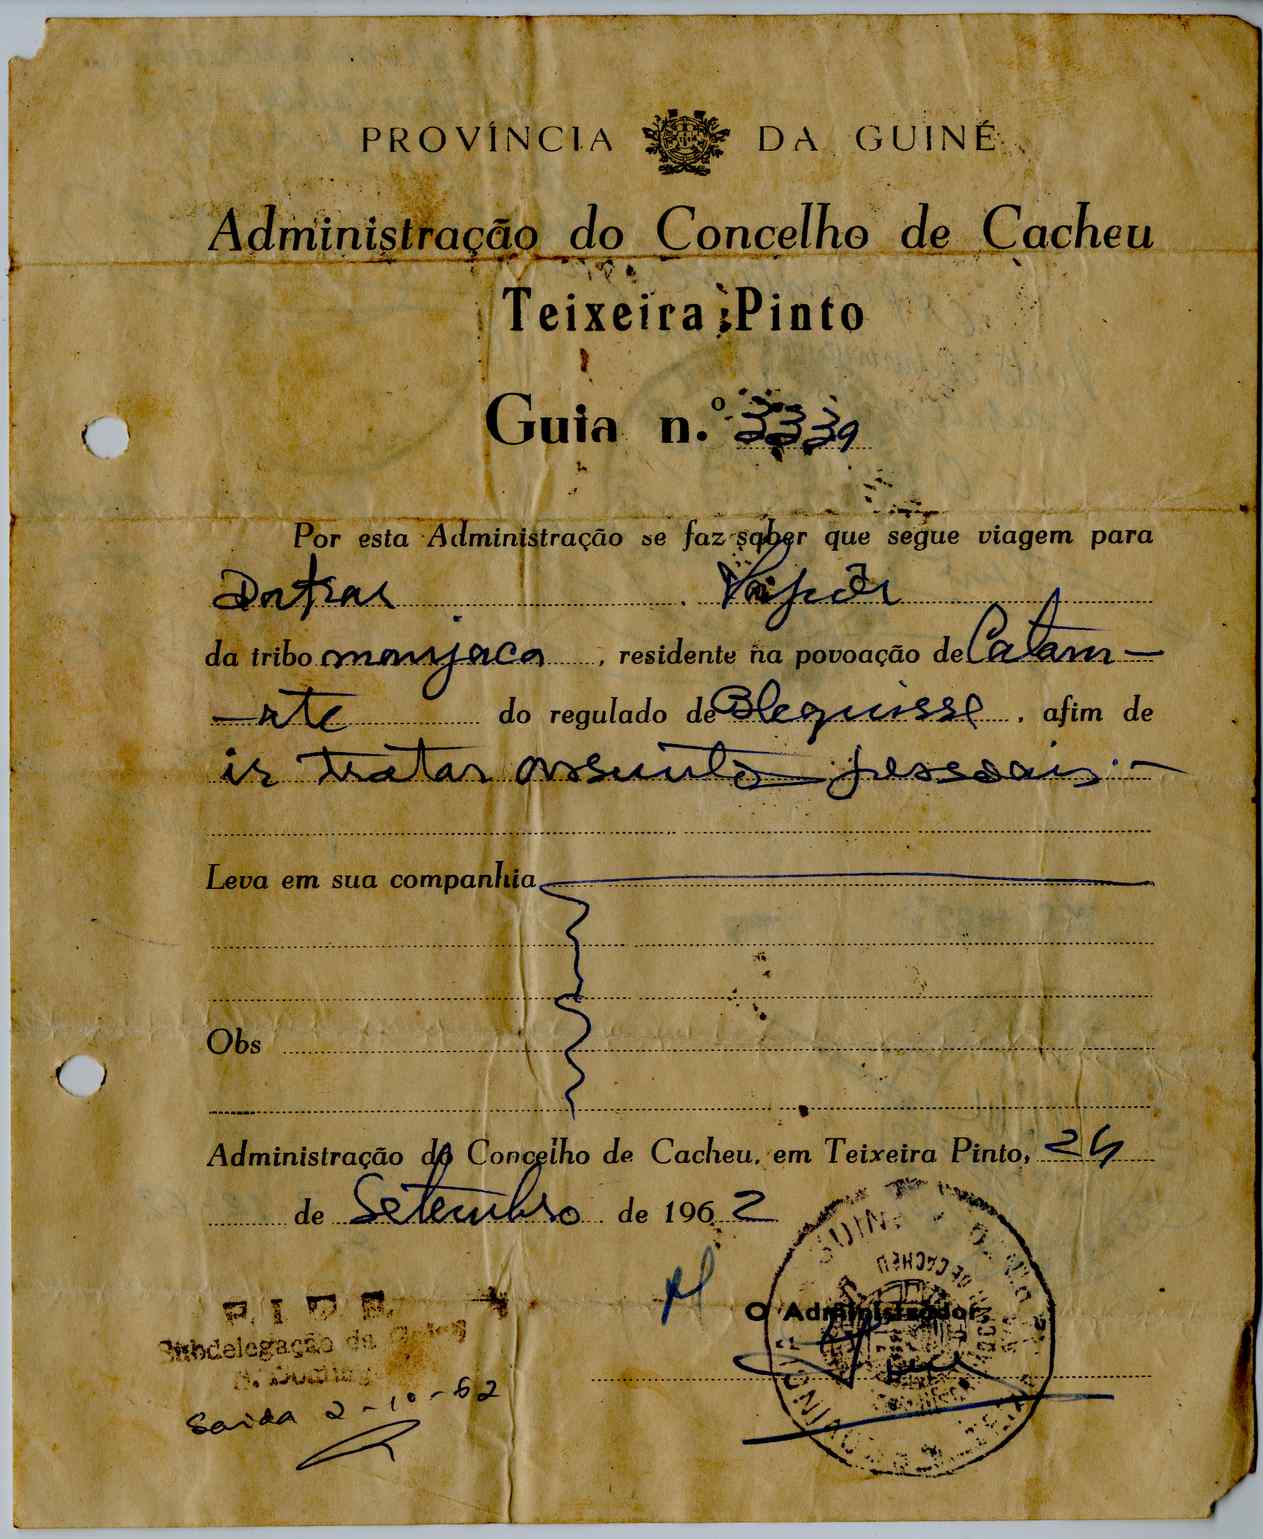 PROVÍNCIA DA GUINÉ
Administração do Concelho de Cacheu
Teixeira Pinto
Guia n.º 3339
Por esta Administração se faz saber que segue viagem para
da tribo manjaca, residente na povoação de Catam-
-nte do regulado de Blequisse, afim de
ir tratar assuntos pessoais.-
Leva em sua companhia
Obs
Administração do Concelho de Cacheu, em Teixeira Pinto, 24
de Setembro de 1962
O Administrador
P. I. D. E.
Subdelegação da
Saida 2-10-62
DE CACHEU